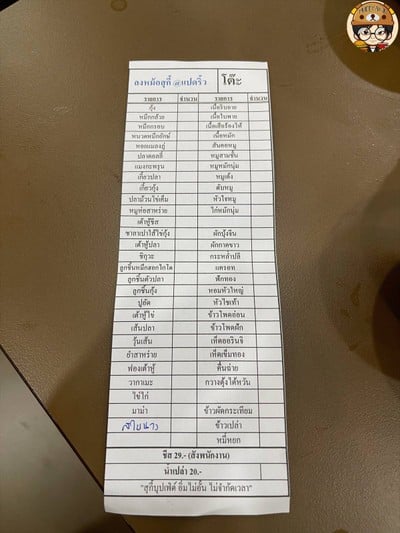 ลงหม้อสุกี้ @แปดริ้ว โต๊ะ
รายการ จำนวน รายการ จำนวน
กุ้ง เนื้อริบอาย
หมึกกล้วย เนื้อใบพาย
หมึกกรอบ เนื้อเสือร้องไห้
หนวดหมึกยักษ์ เนื้อหมัก
หอยแมลงภู่ สันคอหมู
ปลาดอลลี่ หมูสามชั้น
แมงกะพรุน หมูหมักนุ่ม
เกี๊ยวปลา หมูเด้ง
เกี๊ยวกุ้ง ตับหมู
ปลาม้วนไข่เค็ม หัวใจหมู
หมูห่อสาหร่าย ไก่หมักนุ่ม
เต้าหู้ชีส
ซาลาเปาไส้ไข่กุ้ง ผักบุ้งจีน
เต้าหู้ปลา ผักกาดขาว
ชิกุวะ กระหล่ำปลี
ลูกชิ้นหมึกฮอกไกโด แครอท
ลูกชิ้นตัวปลา ฟักทอง
ลูกชิ้นกุ้ง หอมหัวใหญ่
ปูอัด หัวไชเท้า
เต้าหู้ไข่ ข้าวโพดอ่อน
เส้นปลา ข้าวโพดฝัก
วุ้นเส้น เห็ดออรินจิ
ยำสาหร่าย เห็ดเข็มทอง
ฟองเต้าหู้ คื่นฉ่าย
วากาเมะ กวางตุ้งไต้หวัน
ไข่ไก่
มาม่า ข้าวผัดกระเทียม
ข้าวเปล่า
หมี่หยก
ชีส 29.- (สั่งพนักงาน)
น้ำเปล่า 20.-
"สุกี้บุปเฟ่ต์ อิ่มไม่อั้น ไม่จำกัดเวลา"